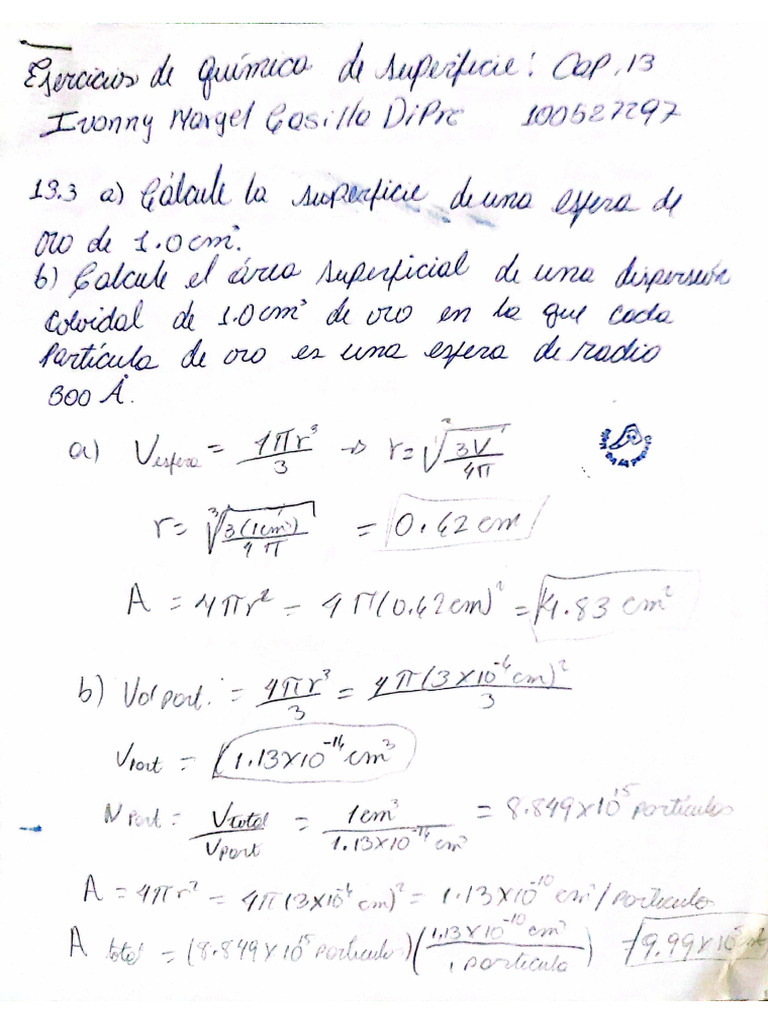 Ejercicios de química de superficie: Cap. 13
Ivonny Margel Casilla DiPre 100527297
13.3 a) Cálcule la superficie de una esfera de
oro de 1.0 cm³.
b) Calcule el área superficial de una dispersión
coloidal de 1.0 cm³ de oro en la que cada
Partícula de oro es una esfera de radio
300 Å.
a) V esfera = 4πr³/3 → r = ³√(3V/4π)
r = ³√(3(1cm³)/4π) = 0.62 cm
A = 4πr² = 4π(0.62cm)² = 4.83 cm²
b) Vol part. = 4πr³/3 = 4π(3x10⁻⁶cm)²/3
Vpart = 1.13x10⁻¹⁶ cm³
N Part = Vtotal/Vpart = 1cm³/1.13x10⁻¹⁶ cm³ = 8.849x10¹⁵ partículas
A = 4πr² = 4π(3x10⁻⁶ cm)² = 1.13x10⁻¹⁰ cm²/particula
A total = (8.849x10¹⁵ particulas)(1.13x10⁻¹⁰ cm²/1 particula) = 9.99x10⁵